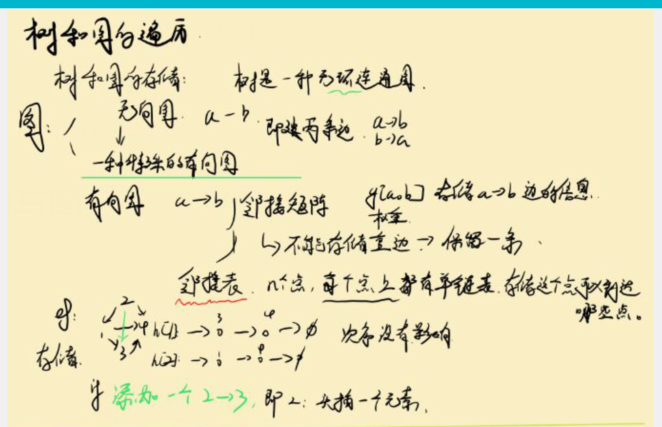 树和图的遍历.
树和图的存储: 树是一种无环连通图.
图: 无向图. a-b. 即建两条边. a→b
b→a
一种特殊的有向图
有向图 a→b 邻接矩阵 g[a,b] 存储a→b 边的信息.
权重
↳ 不能存储重边→ 保留一条.
邻接表. n个点, 每个点上都有单链表. 存储这个点可以到达
哪些点。
ef: 2 1 → 4 3 h[1] → 3 → 4 → ∅ 次序没有影响
存储. h[2]: → 1 → 4 → ∅
if 添加一个 2→3, 即2: 头插一个元素.